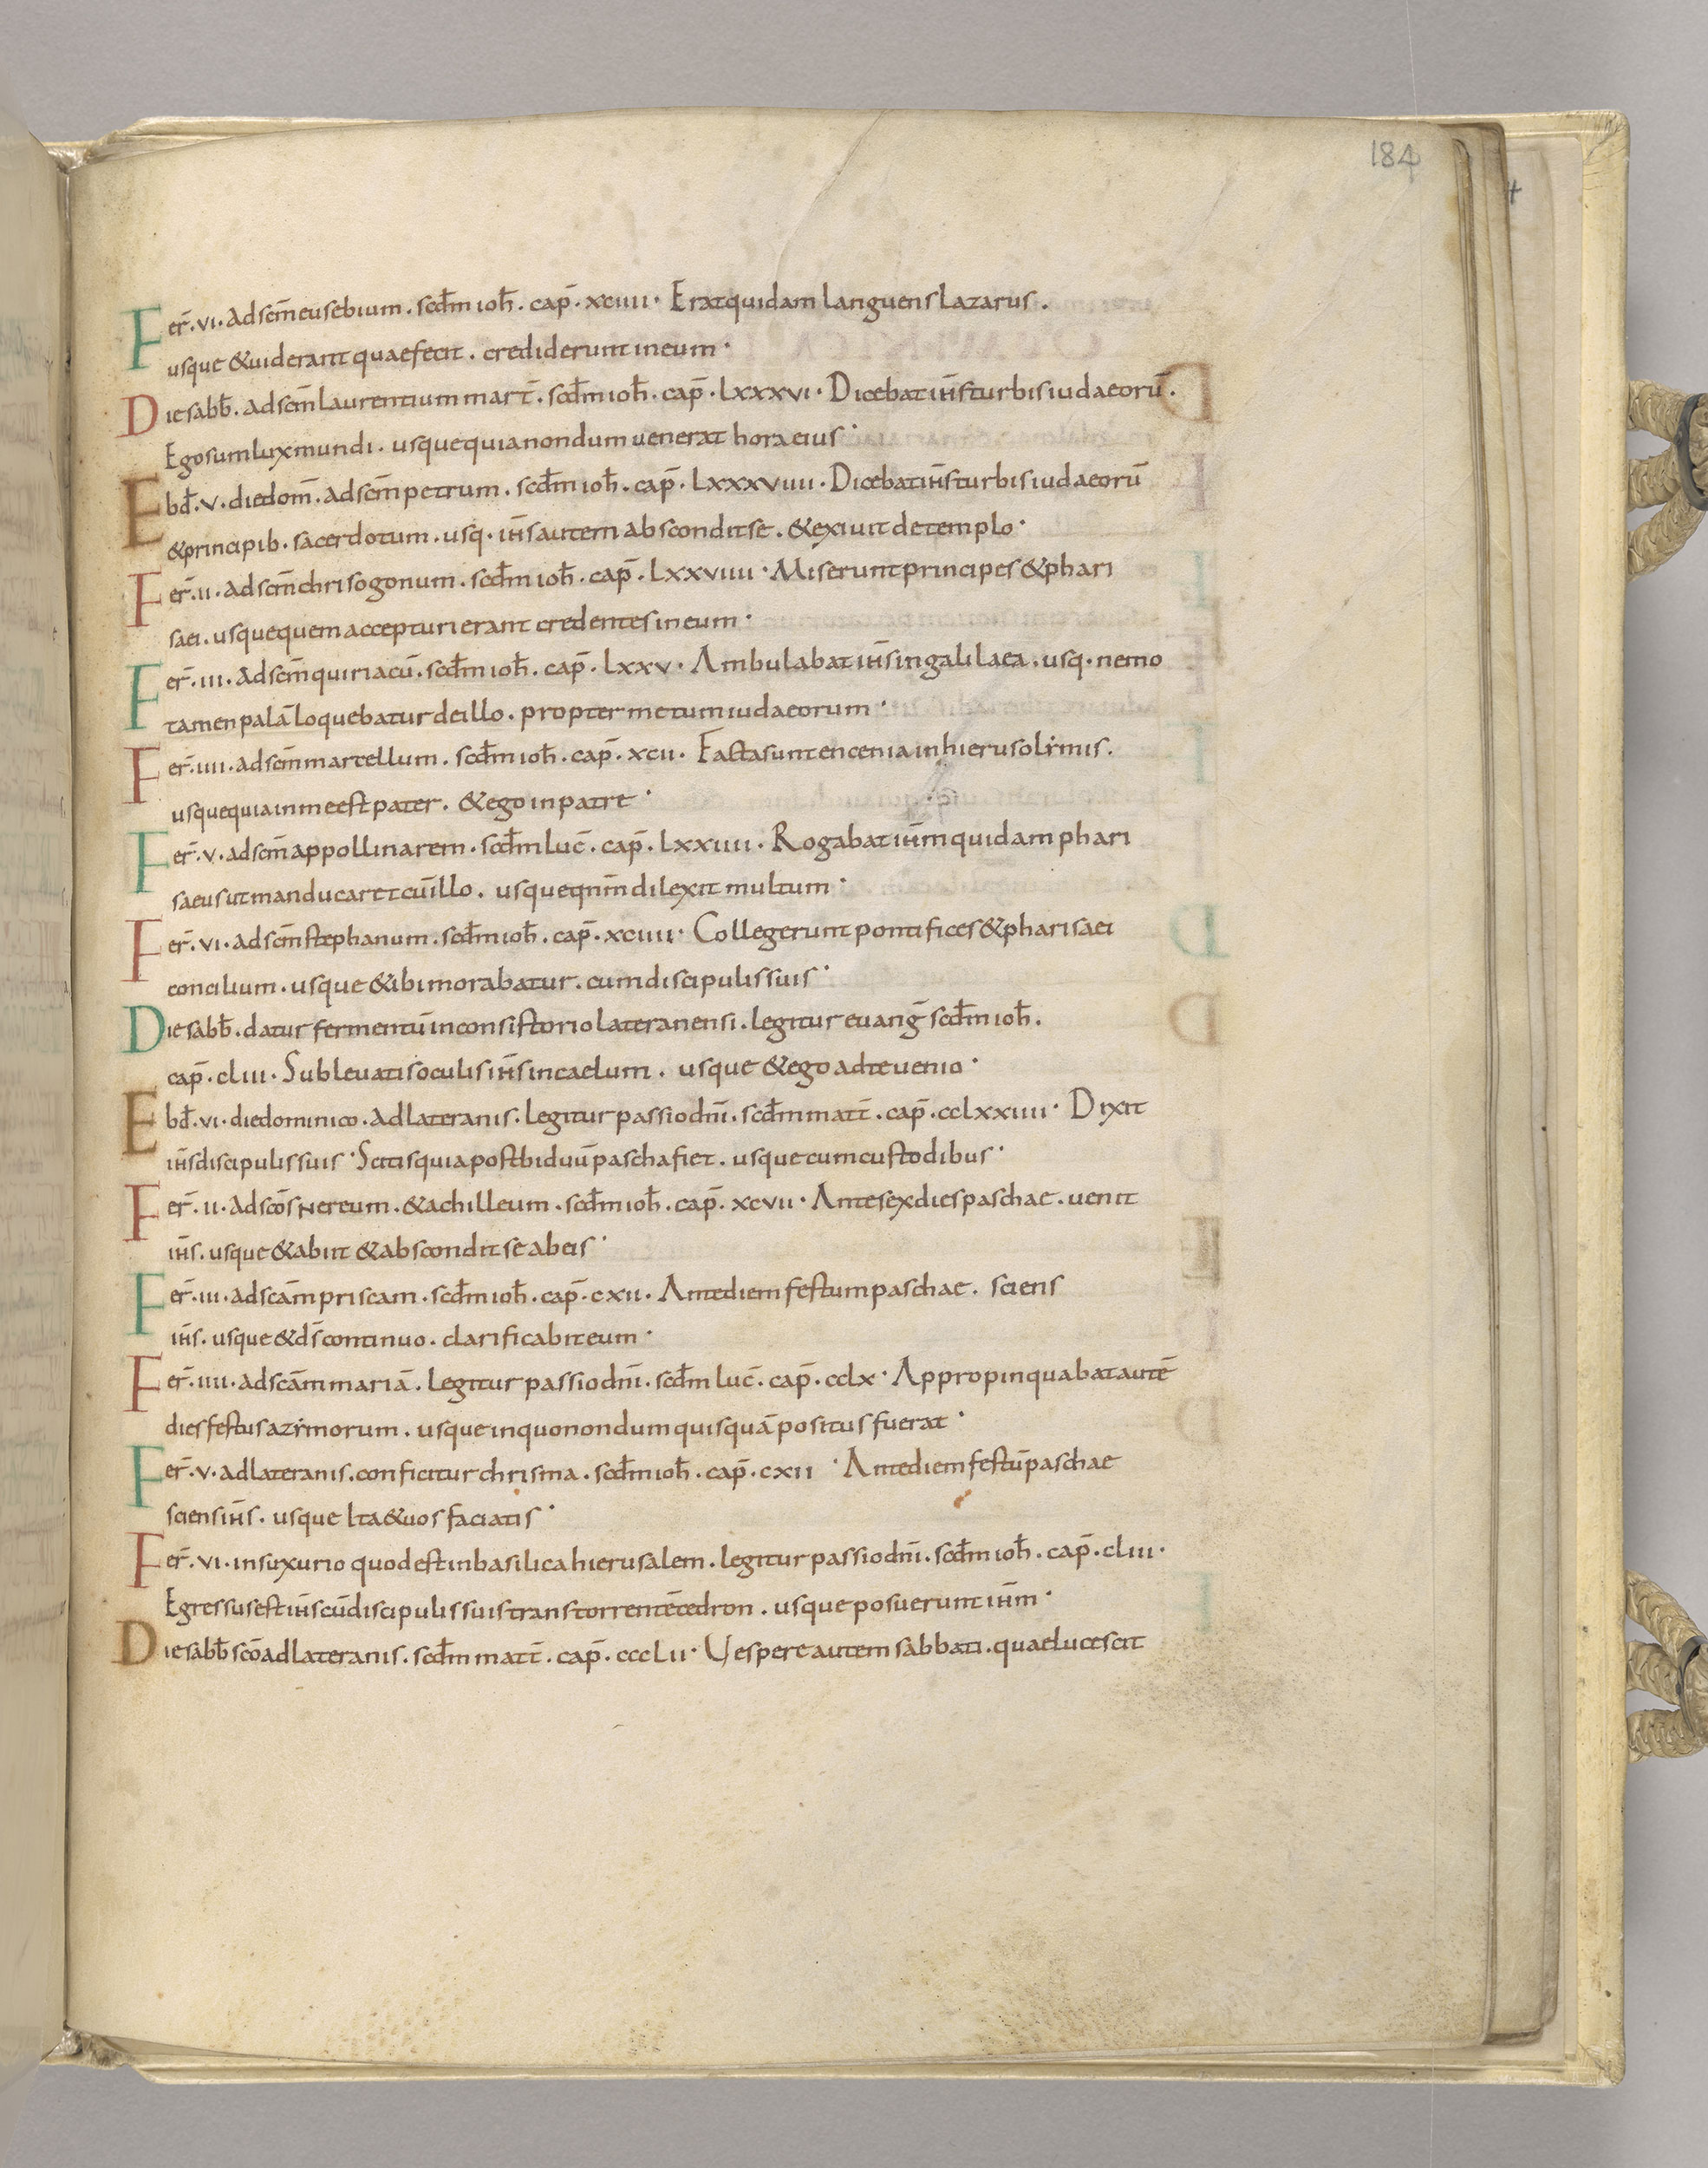 184
Fer̄. vi. ad sc̄m eusebium. scd̄m ioh̄. cap̄. xciiii. Erat quidam languens lazarus.
usque & uiderant quae fecit. crediderunt in eum.
Die sabb̄. ad sc̄m laurentium mart̄. scd̄m ioh̄. cap̄. lxxxvi. Dicebat ih̄s turbis iudaeorū.
Ego sum lux mundi. usque quia nondum uenerat hora eius.
Ebd̄. v. die dom̄. ad sc̄m petrum. scd̄m ioh̄. cap̄. lxxxviiii. Dicebat ih̄s turbis iudaeorū
& principib. sacerdotum. usq. ih̄s autem abscondit se. & exiuit de templo.
Fer̄. ii. ad sc̄m chrisogonum. scd̄m ioh̄. cap̄. lxxviiii. Miserunt principes & phari
saei. usque quem accepturi erant credentes in eum.
Fer̄. iii. ad sc̄m quiriacū. scd̄m ioh̄. cap̄. lxxv. Ambulabat ih̄s in galilaea. usq. nemo
tamen palā loquebatur de illo. propter metum iudaeorum.
Fer̄. iiii. ad sc̄m martellum. scd̄m ioh̄. cap̄. xcii. Facta sunt encenia in hierusolẏmis.
usque quia in me est pater. & ego in patre.
Fer̄. v. ad sc̄m appollinarem. scd̄m luc̄. cap̄. lxxiiii. Rogabat ih̄m quidam phari
saeus ut manducaret cū illo. usque qnm̄ dilexit multum.
Fer̄. vi. ad sc̄m stephanum. scd̄m ioh̄. cap̄. xciiii. Collegerunt pontifices & pharisaei
concilium. usque & ibi morabatur. cum discipulis suis.
Die sabb̄. datur fermentū in consistorio lateranensi. legitur euanḡ scd̄m ioh̄.
cap̄. cliii. Subleuatis oculis ih̄s in caelum. usque & ego ad te uenio.
Ebd̄. vi. die dominico. ad lateranis. legitur passio dn̄i. scd̄m matt̄. cap̄. cclxxiiii. Dixit
ih̄s discipulis suis. Scitis quia post biduū pascha fiet. usque cum custodibus.
Fer̄. ii. ad sc̄os nereum. & achilleum. scd̄m ioh̄. cap̄. xcvii. Ante sex dies paschae. uenit
ih̄s. usque & abiit & abscondit se ab eis.
Fer̄. iii. ad sc̄am priscam. scd̄m ioh̄. cap̄. cxii. Ante diem festum paschae. sciens
ih̄s. usque & d̄s continuo. clarificabit eum.
Fer̄. iiii. ad sc̄am mariā. legitur passio dn̄i. scd̄m luc̄. cap̄. cclx. Appropinquabat autē
dies festus azẏmorum. usque in quo nondum quisquā positus fuerat.
Fer̄. v. ad lateranis. conficitur chrisma. scd̄m ioh̄. cap̄. cxii. Ante diem festū paschae
sciens ih̄s. usque Ita & uos faciatis.
Fer̄. vi. in suxurio quod est in basilica hierusalem. legitur passio dn̄i. scd̄m ioh̄. cap̄. cliii.
Egressus est ih̄s cū discipulis suis trans torrentē cedron. usque posuerunt ih̄m.
Die sabb̄ sc̄o ad lateranis. scd̄m matt̄. cap̄. ccclii. Uespere autem sabbati. quae lucescit